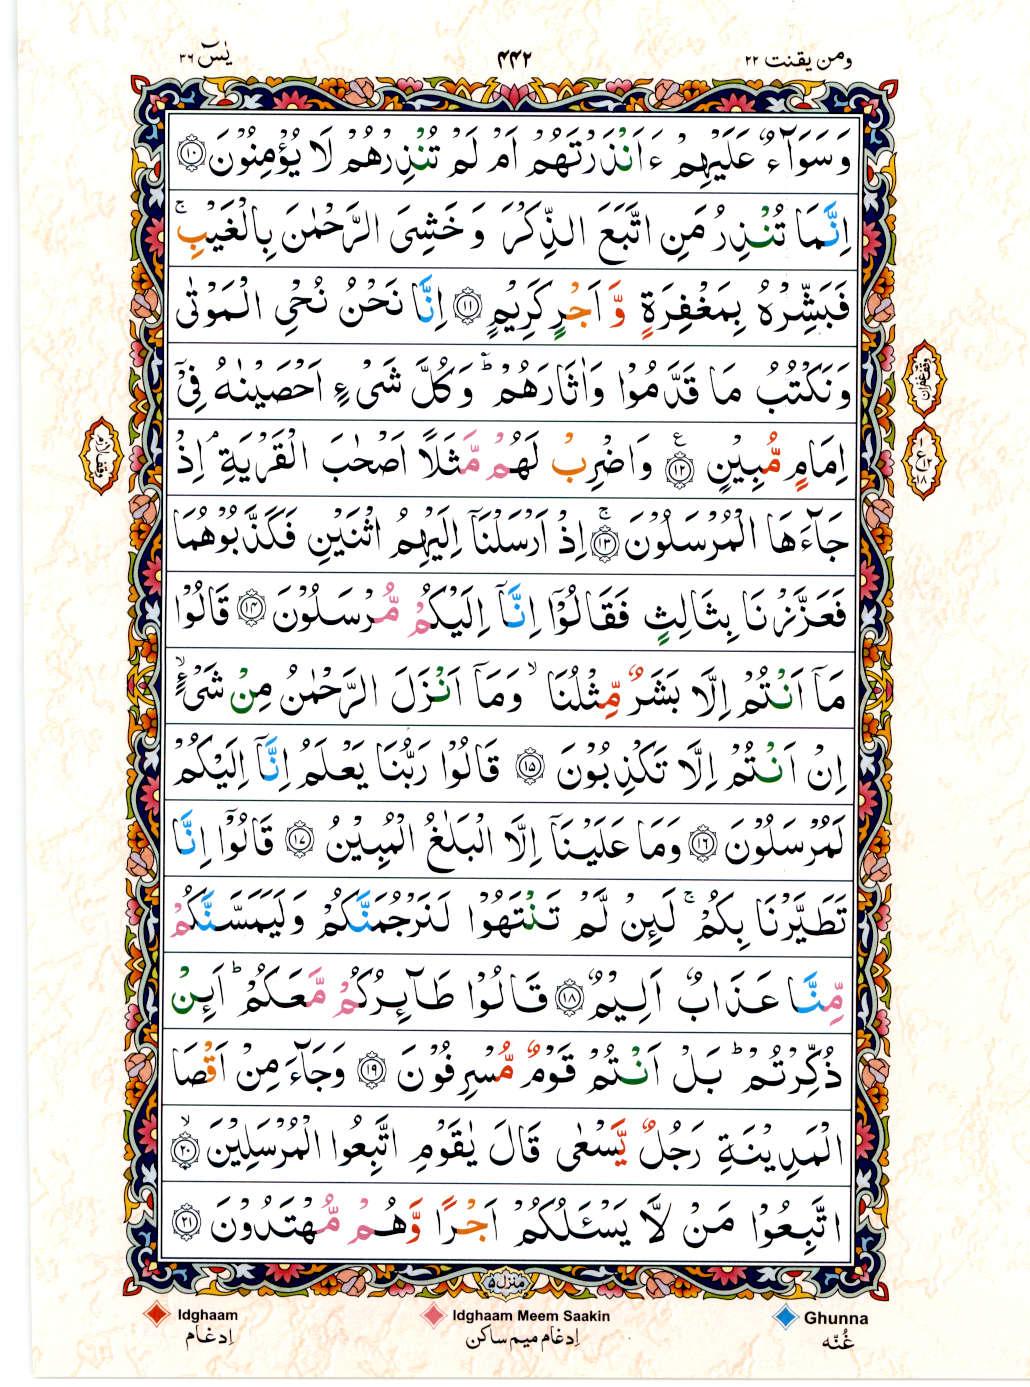 ومن يقنت ٢٢
۴۴۲
يٰسٓ ٣٦
وَ سَوَآءٌ عَلَيْهِمْ ءَاَنْذَرْتَهُمْ اَمْ لَمْ تُنْذِرْهُمْ لَا يُؤْمِنُوْنَ ﴿١٠﴾
اِنَّمَا تُنْذِرُ مَنِ اتَّبَعَ الذِّكْرَ وَ خَشِىَ الرَّحْمٰنَ بِالْغَيْبِ ۚ
فَبَشِّرْهُ بِمَغْفِرَةٍ وَّ اَجْرٍ كَرِيْمٍ ﴿١١﴾ اِنَّا نَحْنُ نُحْىِ الْمَوْتٰى
وَ نَكْتُبُ مَا قَدَّمُوْا وَاٰثَارَهُمْ ؕ وَكُلَّ شَىْءٍ اَحْصَيْنٰهُ فِىْٓ
اِمَامٍ مُّبِيْنٍ ﴿١٢﴾ وَاضْرِبْ لَهُمْ مَّثَلًا اَصْحٰبَ الْقَرْيَةِ ۘ اِذْ
جَآءَهَا الْمُرْسَلُوْنَ ۚ﴿١٣﴾ اِذْ اَرْسَلْنَاۤ اِلَيْهِمُ اثْنَيْنِ فَكَذَّبُوْهُمَا
فَعَزَّزْنَا بِثَالِثٍ فَقَالُوْۤا اِنَّاۤ اِلَيْكُمْ مُّرْسَلُوْنَ ﴿١۴﴾ قَالُوْا
مَاۤ اَنْتُمْ اِلَّا بَشَرٌ مِّثْلُنَا ۙ وَمَاۤ اَنْزَلَ الرَّحْمٰنُ مِنْ شَىْءٍ ۙ
اِنْ اَنْتُمْ اِلَّا تَكْذِبُوْنَ ﴿١۵﴾ قَالُوْا رَبُّنَا يَعْلَمُ اِنَّاۤ اِلَيْكُمْ
لَمُرْسَلُوْنَ ﴿١٦﴾ وَمَا عَلَيْنَاۤ اِلَّا الْبَلٰغُ الْمُبِيْنُ ﴿١٧﴾ قَالُوْۤا اِنَّا
تَطَيَّرْنَا بِكُمْ ۚ لَئِنْ لَّمْ تَنْتَهُوْا لَنَرْجُمَنَّكُمْ وَ لَيَمَسَّنَّكُمْ
مِّنَّا عَذَابٌ اَلِيْمٌ ﴿١٨﴾ قَالُوْا طَآئِرُكُمْ مَّعَكُمْ ؕ اَئِنْ
ذُكِّرْتُمْ ؕ بَلْ اَنْتُمْ قَوْمٌ مُّسْرِفُوْنَ ﴿١٩﴾ وَجَآءَ مِنْ اَقْصَا
الْمَدِيْنَةِ رَجُلٌ يَّسْعٰى قَالَ يٰقَوْمِ اتَّبِعُوا الْمُرْسَلِيْنَ ۙ﴿٢٠﴾
اتَّبِعُوْا مَنْ لَّا يَسْـَٔلُكُمْ اَجْرًا وَّهُمْ مُّهْتَدُوْنَ ﴿٢١﴾
وقف غفران
ع
١
١٢
١٨
وقف لازم
منزل ۵
Ghunna
غُنّه
Idghaam Meem Saakin
اِدغام میم ساکن
Idghaam
اِدغام